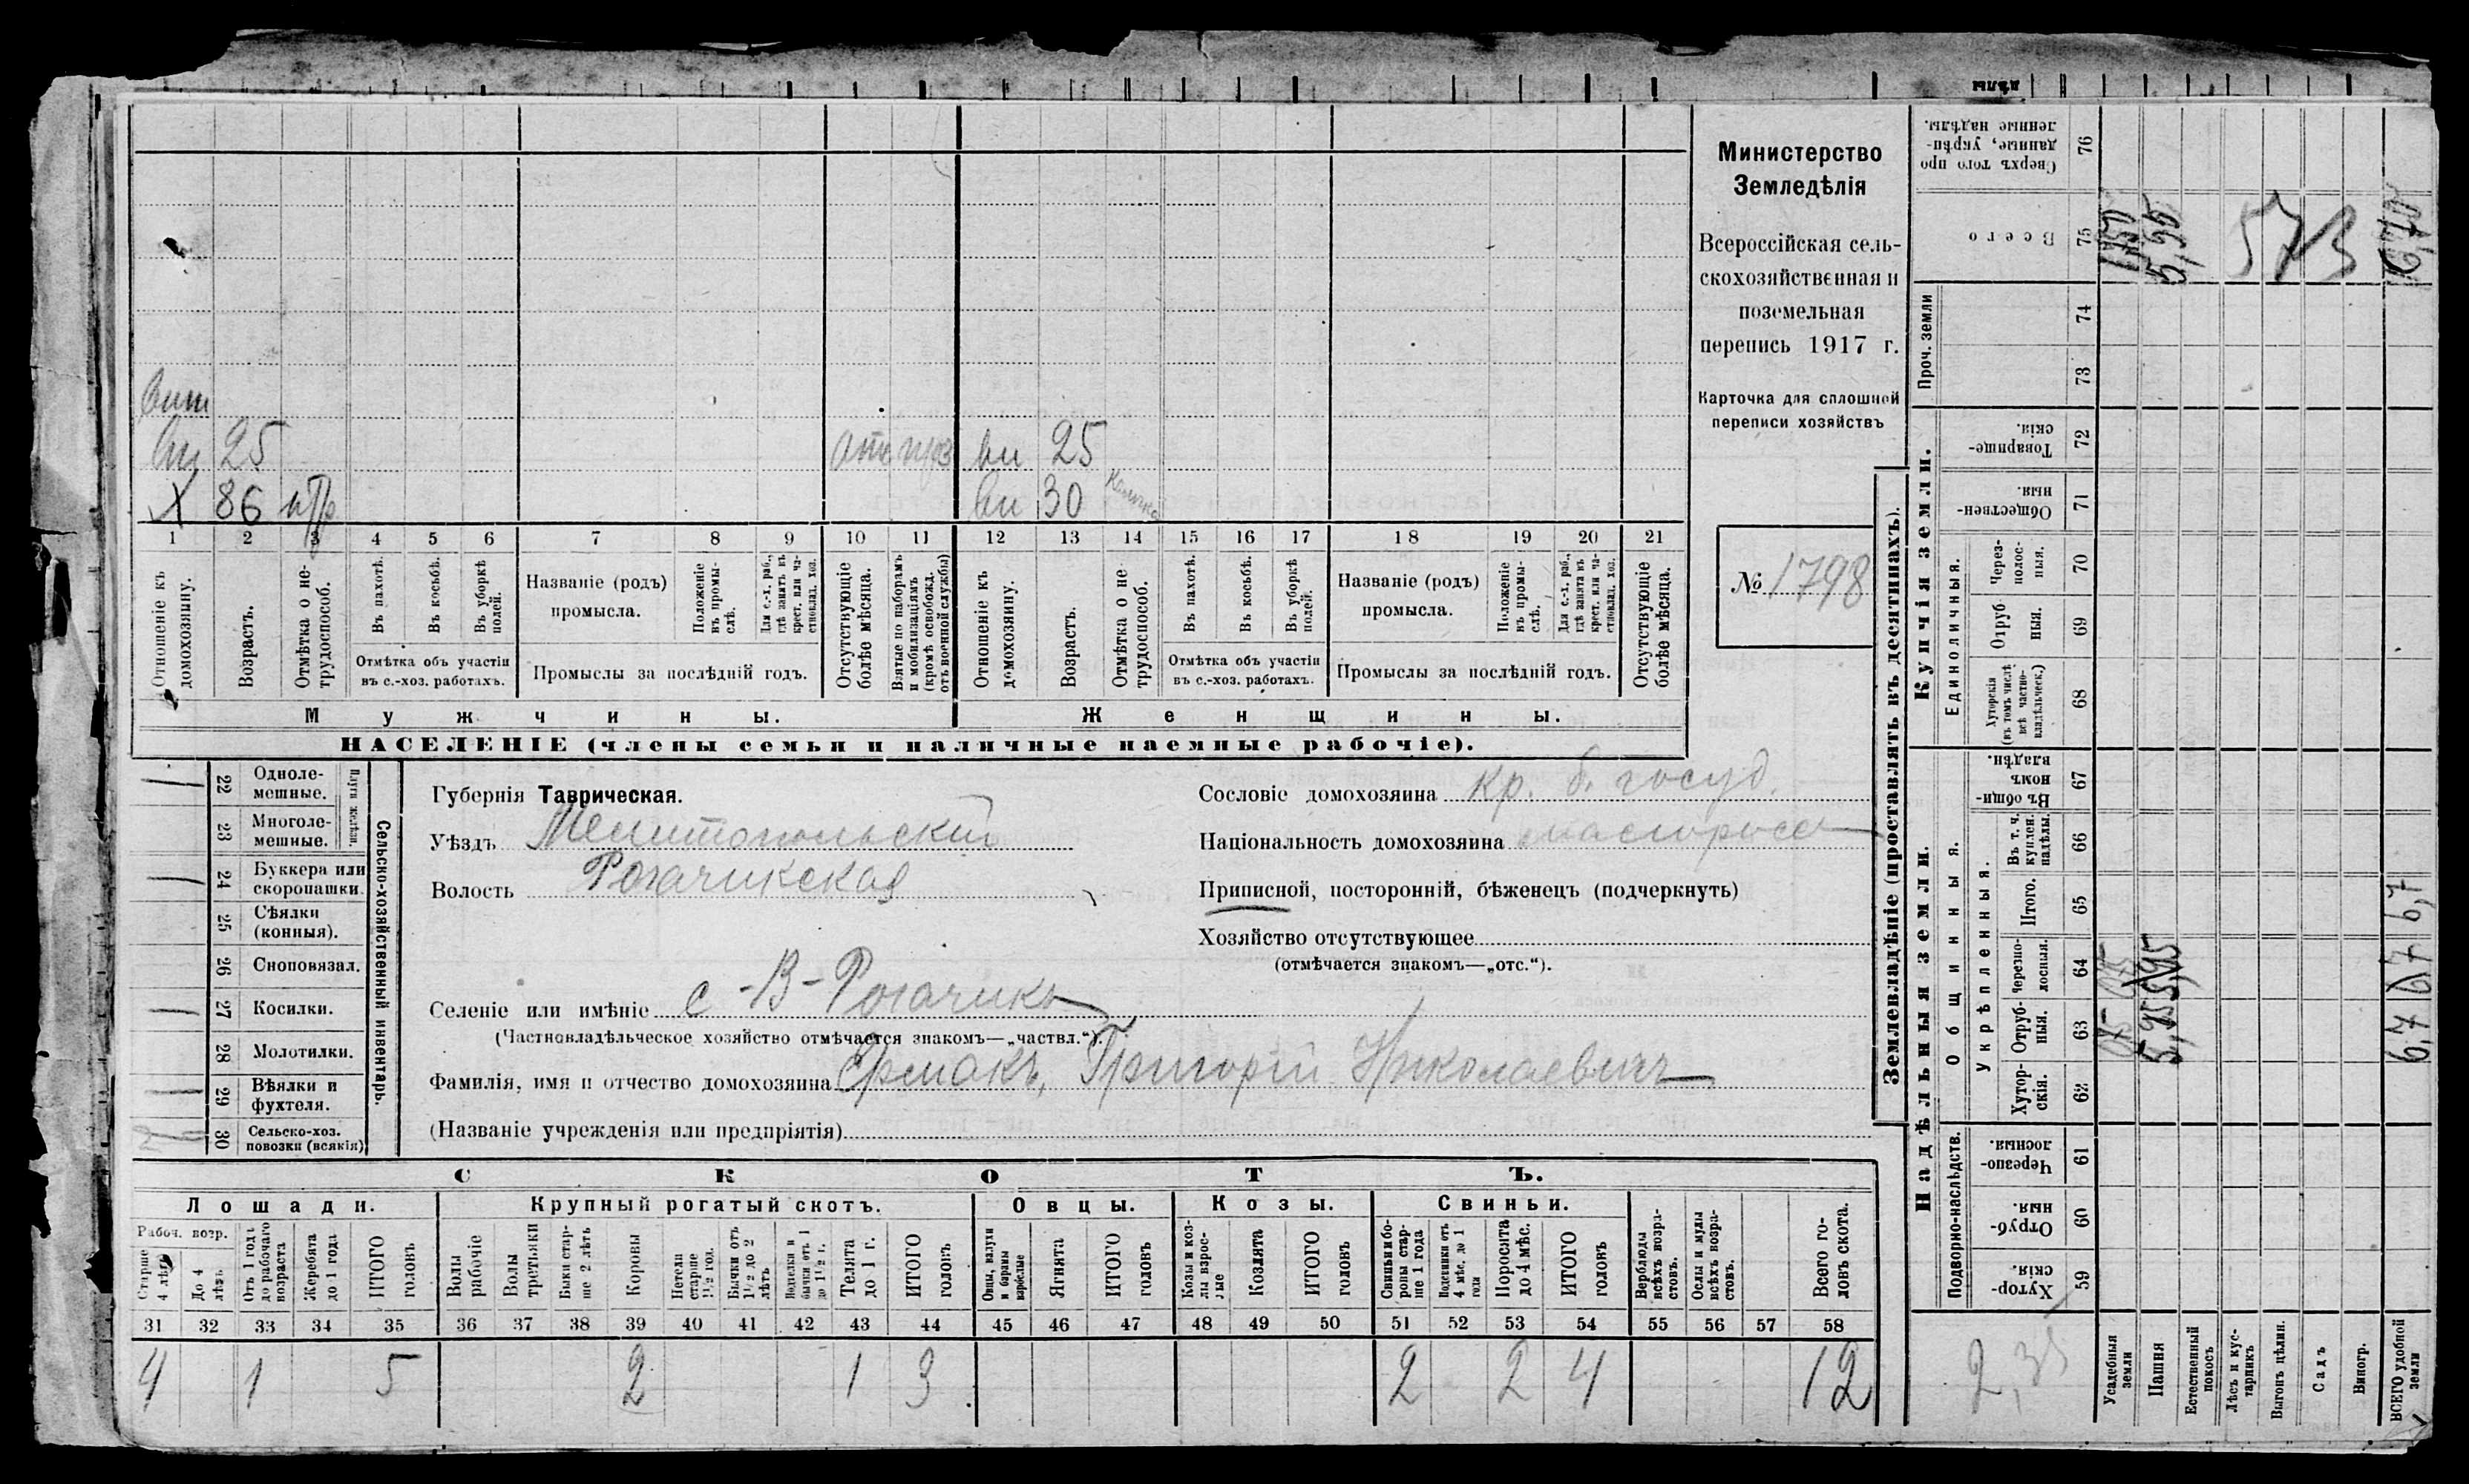 дѣлы
Министерство
Земледѣлія
Всероссійская сель-
скохозяйственная и
поземельная
перепись 1917 г.
Карточка для сплошной
переписи хозяйствъ
№ 1798
вн 25 вн 25
X 86 вн 30
1 2 3 4 5 6 7 8 9 10 11 12 13 14 15 16 17 18 19 20 21
Отношеніе къ домохозяину.
Возрастъ.
Отмѣтка о не-трудоспособ.
Въ пахотѣ.
Въ косьбѣ.
Въ уборкѣ полей.
Отмѣтка объ участіи
въ с.-хоз. работахъ.
Названіе (родъ)
промысла.
Положеніе въ промы-слѣ.
Для с.-х. раб., гдѣ занятъ въ крест. или ча-стновлад. хоз.
Промыслы за послѣдній годъ.
Отсутствующіе болѣе мѣсяца.
Взятые по наборамъ и мобилизаціямъ (кромѣ освобожд. отъ военной службы)
Отношеніе къ домохозяину.
Возрастъ.
Отмѣтка о не-трудоспособ.
Въ пахотѣ.
Въ косьбѣ.
Въ уборкѣ полей.
Отмѣтка объ участіи
въ с.-хоз. работахъ.
Названіе (родъ)
промысла.
Положеніе въ промы-слѣ.
Для с.-х. раб., гдѣ занятъ въ крест. или ча-стновлад. хоз.
Промыслы за послѣдній годъ.
Отсутствующіе болѣе мѣсяца.
Мужчины. Женщины.
НАСЕЛЕНІЕ (члены семьи и наличные наемные рабочіе).
Сельско-хозяйственный инвентарь.
Плуги желѣзн.
22 Одноле-мешные.
23 Многоле-мешные.
24 Буккера или скоропашки.
25 Сѣялки (конныя).
26 Сноповязал.
27 Косилки.
28 Молотилки.
29 Вѣялки и фухтеля.
30 Сельско-хоз. повозки (всякія)
Губернія Таврическая.
Уѣздъ Мелитопольскій
Волость Рогачикская
Селеніе или имѣніе с-В-Рогачикъ
(Частновладѣльческое хозяйство отмѣчается знакомъ—„частвл.“).
Фамилія, имя и отчество домохозяина Ермакъ, Григорій Николаевич
(Названіе учрежденія или предпріятія)
Сословіе домохозяина кр. б. госуд.
Національность домохозяина малоросс
Приписной, посторонній, бѣженецъ (подчеркнуть)
Хозяйство отсутствующее
(отмѣчается знакомъ—„отс.“).
СКОТЪ.
Лошади. Крупный рогатый скотъ. Овцы. Козы. Свиньи.
Рабоч. возр.
Старше 4 лѣтъ
До 4 лѣтъ.
Отъ 1 года до рабочаго возраста
Жеребята до 1 года
ИТОГО головъ
Волы рабочіе
Волы третьяки
Быки стар-ше 2 лѣтъ
Коровы
Нетели старше 1½ год.
Бычки отъ 1½ до 2 лѣтъ
Телята до 1 г.
ИТОГО головъ
Овцы, валухи и бараны взрослые
Ягнята
ИТОГО головъ
Козы и коз-лы взрос-лые
Козлята
ИТОГО головъ
Свиньи и бо-ровы стар-ше 1 года
Подсвинки отъ 4 мѣс. до 1 года
Поросята до 4 мѣс.
ИТОГО головъ
Верблюды всѣхъ возра-стовъ.
Ослы и мулы всѣхъ возра-стовъ.
Всего го-ловъ скота.
31 32 33 34 35 36 37 38 39 40 41 42 43 44 45 46 47 48 49 50 51 52 53 54 55 56 57 58
4 1 5 2 1 3 2 2 4 12
Землевладѣніе (проставлять въ десятинахъ).
Надѣльныя земли.
Купчія земли.
Подворно-наслѣдств.
Общинныя.
Укрѣпленныя.
Единоличныя.
Проч. земли
59 Хутор-скія.
60 Отруб-ныя.
61 Черезпо-лосныя.
62 Хутор-скія.
63 Отруб-ныя.
64 Черезпо-лосныя.
65 Итого.
66 Въ т. ч. куплен. надѣлы.
67 Въ общи-номъ владѣн.
68 Хуторскія (въ томъ числѣ всѣ частно-владѣльческ.)
69 Отруб-ныя.
70 Через-полос-ныя.
71 Обществен-ныя.
72 Товарище-скія.
73
74
75 Всего
76 Сверхъ того про-данные, укрѣп-ленные надѣлы.
Усадебныя земли
Пашня
Естественный покосъ
Лѣсъ и кус-тарникъ
Выгонъ цѣлин.
Садъ
Виногр.
ВСЕГО удобной земли
5,95
6,7
573